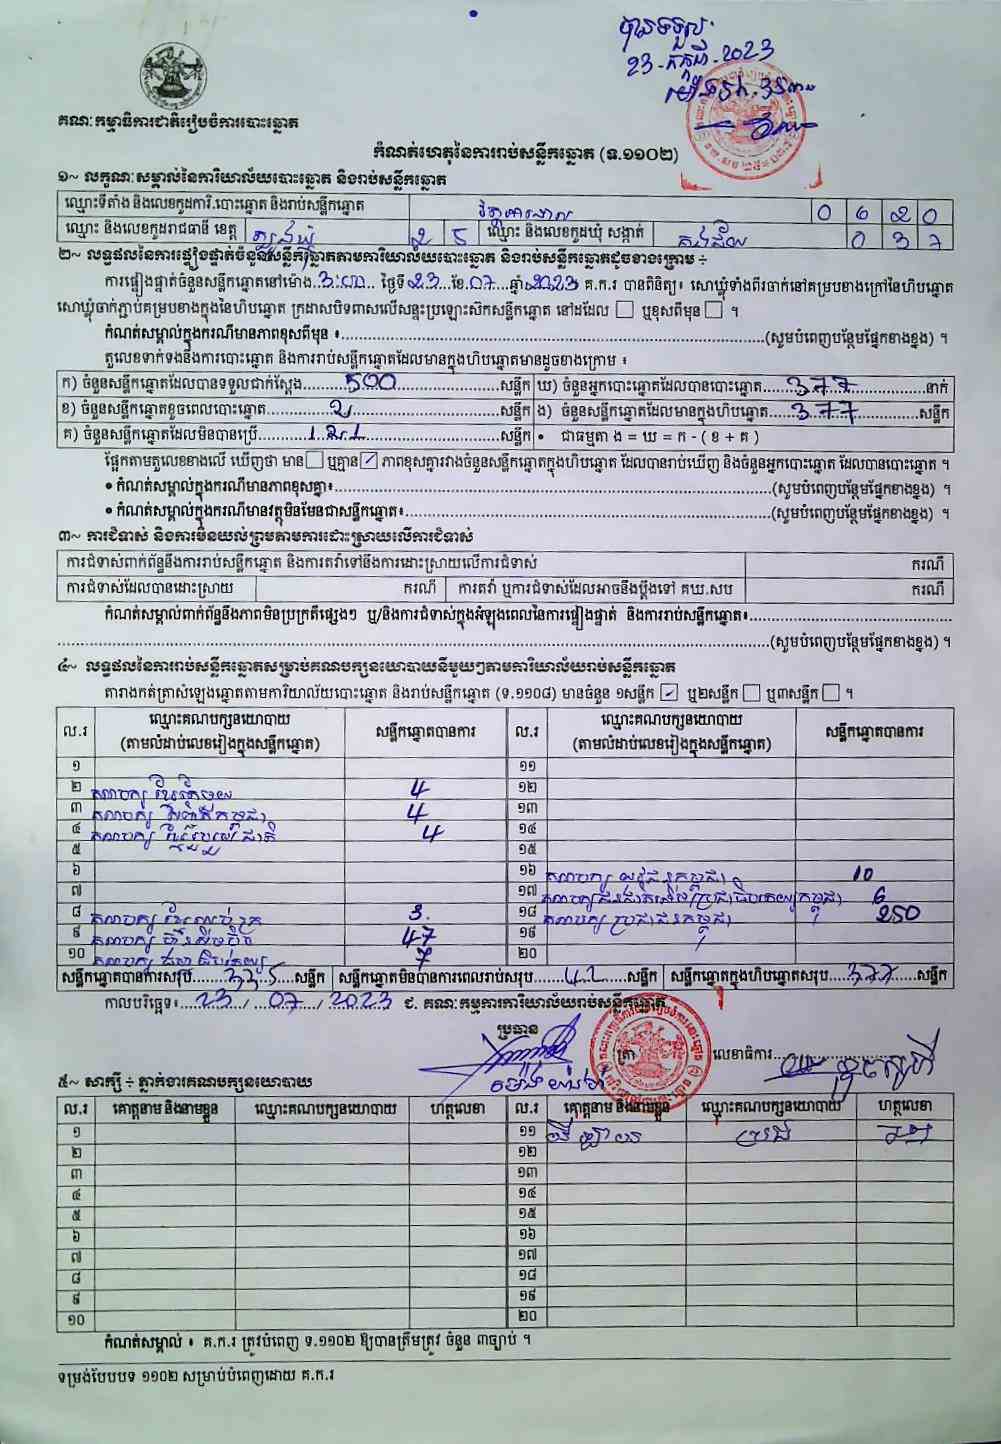 បានទទួល
23-កក្កដា-2023
គណៈកម្មាធិការជាតិរៀបចំការបោះឆ្នោត
កំណត់ហេតុនៃការរាប់សន្លឹកឆ្នោត (ទ.១១០២)
១~ លក្ខណៈសម្គាល់នៃការិយាល័យបោះឆ្នោត និងរាប់សន្លឹកឆ្នោត
ឈ្មោះទីតាំង និងលេខកូដការិ.បោះឆ្នោត និងរាប់សន្លឹកឆ្នោត 0 6 2 0
ឈ្មោះ និងលេខកូដរាជធានី ខេត្ត ត្បូងឃ្មុំ 2 5 ឈ្មោះ និងលេខកូដឃុំ សង្កាត់ គងជ័យ 0 3 7
២~ លទ្ធផលនៃការផ្ទៀងផ្ទាត់ចំនួនសន្លឹកឆ្នោតតាមការិយាល័យបោះឆ្នោត និងរាប់សន្លឹកឆ្នោតដូចខាងក្រោម ÷
ការផ្ទៀងផ្ទាត់ចំនួនសន្លឹកឆ្នោតនៅម៉ោង..3:00... ថ្ងៃទី..23...ខែ.07...ឆ្នាំ.2023 គ.ក.រ បានពិនិត្យ៖ សោឃ្លុំទាំងពីរចាក់នៅគម្របខាងក្រៅនៃហិបឆ្នោត
សោឃ្លុំចាក់ភ្ជាប់គម្របខាងក្នុងនៃហិបឆ្នោត ក្រដាសបិទពាសលើសន្ទះប្រឡោះស៊កសន្លឹកឆ្នោត នៅដដែល ☐ ឬខុសពីមុន ☐ ។
កំណត់សម្គាល់ក្នុងករណីមានភាពខុសពីមុន ៖.....(សូមបំពេញបន្ថែមផ្នែកខាងខ្នង) ។
តួលេខទាក់ទងនឹងការបោះឆ្នោត និងការរាប់សន្លឹកឆ្នោតដែលមានក្នុងហិបឆ្នោតមានដូចខាងក្រោម ៖
ក) ចំនួនសន្លឹកឆ្នោតដែលបានទទួលជាក់ស្តែង.....500.....សន្លឹក ឃ) ចំនួនអ្នកបោះឆ្នោតដែលបានបោះឆ្នោត.....377.....នាក់
ខ) ចំនួនសន្លឹកឆ្នោតខូចពេលបោះឆ្នោត.....2.....សន្លឹក ង) ចំនួនសន្លឹកឆ្នោតដែលមានក្នុងហិបឆ្នោត.....377.....សន្លឹក
គ) ចំនួនសន្លឹកឆ្នោតដែលមិនបានប្រើ.....121.....សន្លឹក • ជាធម្មតា ង = ឃ = ក - ( ខ + គ )
ផ្អែកតាមតួលេខខាងលើ ឃើញថា មាន ☐ ឬគ្មាន ☑ ភាពខុសគ្នារវាងចំនួនសន្លឹកឆ្នោតក្នុងហិបឆ្នោត ដែលបានរាប់ឃើញ និងចំនួនអ្នកបោះឆ្នោត ដែលបានបោះឆ្នោត ។
• កំណត់សម្គាល់ក្នុងករណីមានភាពខុសគ្នា៖.....(សូមបំពេញបន្ថែមផ្នែកខាងខ្នង) ។
• កំណត់សម្គាល់ក្នុងករណីមានវត្ថុមិនមែនជាសន្លឹកឆ្នោត៖.....(សូមបំពេញបន្ថែមផ្នែកខាងខ្នង) ។
៣~ ការជំទាស់ និងការមិនយល់ព្រមតាមការដោះស្រាយលើការជំទាស់
ការជំទាស់ពាក់ព័ន្ធនឹងការរាប់សន្លឹកឆ្នោត និងការតវ៉ាទៅនឹងការដោះស្រាយលើការជំទាស់ ករណី
ការជំទាស់ដែលបានដោះស្រាយ ករណី ការតវ៉ា ឬការជំទាស់ដែលអាចនឹងប្តឹងទៅ គឃ.សប ករណី
កំណត់សម្គាល់ពាក់ព័ន្ធនឹងភាពមិនប្រក្រតីផ្សេងៗ ឬ/និងការជំទាស់ក្នុងអំឡុងពេលនៃការផ្ទៀងផ្ទាត់ និងការរាប់សន្លឹកឆ្នោត៖.....
.....(សូមបំពេញបន្ថែមផ្នែកខាងខ្នង) ។
៤~ លទ្ធផលនៃការរាប់សន្លឹកឆ្នោតសម្រាប់គណបក្សនយោបាយនីមួយៗតាមការិយាល័យរាប់សន្លឹកឆ្នោត
តារាងកត់ត្រាសំឡេងឆ្នោតតាមការិយាល័យបោះឆ្នោត និងរាប់សន្លឹកឆ្នោត (ទ.១១០៨) មានចំនួន ១សន្លឹក ☑ ឬ២សន្លឹក ☐ ឬ៣សន្លឹក ☐ ។
ល.រ ឈ្មោះគណបក្សនយោបាយ (តាមលំដាប់លេខរៀងក្នុងសន្លឹកឆ្នោត) សន្លឹកឆ្នោតបានការ ល.រ ឈ្មោះគណបក្សនយោបាយ (តាមលំដាប់លេខរៀងក្នុងសន្លឹកឆ្នោត) សន្លឹកឆ្នោតបានការ
១ ១១
២ គណបក្ស ខ្មែរតែមួយ 4 ១២
៣ គណបក្ស សញ្ជាតិកម្ពុជា 4 ១៣
៤ គណបក្ស ខ្មែររួបរួមជាតិ 4 ១៤
៥ ១៥
៦ ១៦ គណបក្ស យុវជនកម្ពុជា 10
៧ ១៧ គណបក្សជនជាតិដើមប្រជាធិបតេយ្យកម្ពុជា 6
៨ គណបក្ស ខ្មែរឈប់ក្រ 3 ១៨ គណបក្ស ប្រជាជនកម្ពុជា 250
៩ គណបក្ស ហ៊្វុនស៊ិនប៉ិច 47 ១៩
១០ គណបក្ស 7 ២០
សន្លឹកឆ្នោតបានការសរុប...335...សន្លឹក សន្លឹកឆ្នោតមិនបានការពេលរាប់សរុប...42...សន្លឹក សន្លឹកឆ្នោតក្នុងហិបឆ្នោតសរុប...377...សន្លឹក
កាលបរិច្ឆេទ៖...23.../...07.../ 2023 ជ. គណៈកម្មការការិយាល័យរាប់សន្លឹកឆ្នោត
ប្រធាន
ត្រា លេខាធិការ.....
៥~ សាក្សី ÷ ភ្នាក់ងារគណបក្សនយោបាយ
ល.រ គោត្តនាម និងនាមខ្លួន ឈ្មោះគណបក្សនយោបាយ ហត្ថលេខា ល.រ គោត្តនាម និងនាមខ្លួន ឈ្មោះគណបក្សនយោបាយ ហត្ថលេខា
១ ១១
២ ១២
៣ ១៣
៤ ១៤
៥ ១៥
៦ ១៦
៧ ១៧
៨ ១៨
៩ ១៩
១០ ២០
កំណត់សម្គាល់ ៖ គ.ក.រ ត្រូវបំពេញ ទ.១១០២ ឱ្យបានត្រឹមត្រូវ ចំនួន ៣ច្បាប់ ។
ទម្រង់បែបបទ ១១០២ សម្រាប់បំពេញដោយ គ.ក.រ